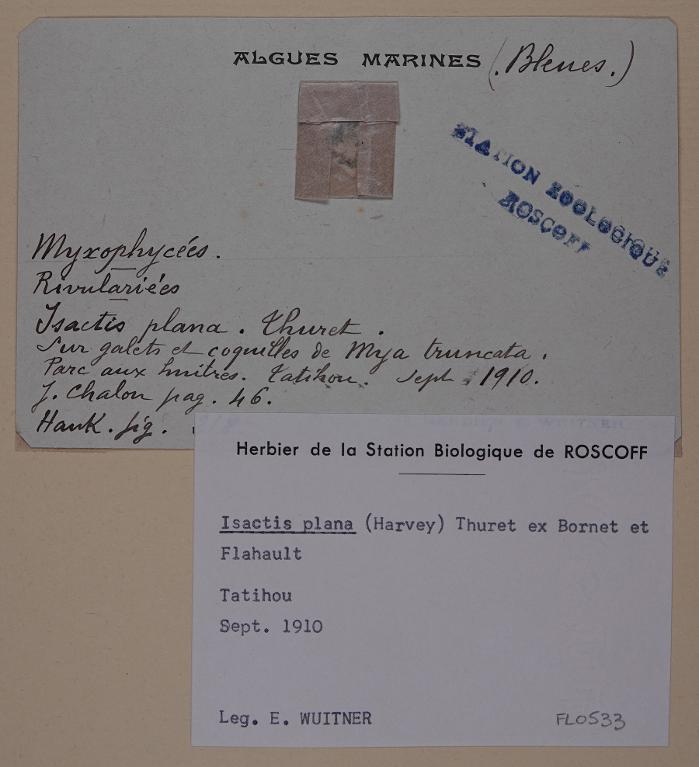 ALGUES MARINES (Bleues.)
STATION ZOOLOGIQUE
ROSCOFF
Myxophycées.
Rivulariées
Isactis plana. Thuret.
Sur galets et coquilles de Mya truncata.
Parc aux huitres. Tatihou. Sept. 1910.
J. Chalon pag. 46.
Hauk. fig.
Herbier de la Station Biologique de ROSCOFF
Isactis plana (Harvey) Thuret ex Bornet et
Flahault
Tatihou
Sept. 1910
Leg. E. WUITNER
FL0533